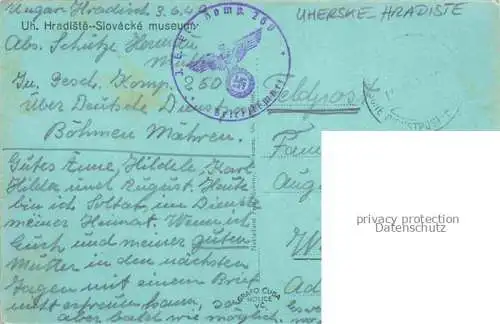 Ungar. Hradisch 3.6.4
UHERSKE-HRADISTE
Uh. Hradiště-Slovácké museum
Abs. Schütze
Komp. 260
Briefstempel
In. Gesch. Komp. 260
Feldpost
über Deutsche Dienst
Böhmen Mähren.
Fam
Gutes Anne, Hildele, Karl
Hilda und August. Heute
Aug
bin ich Soltat im Dienste
privacy protection
meiner Heimat. Wenn ich
Euch und meiner guten
Mutter in den nächsten
Tagen mit einem Brief
mit erfreuen kann,
GRAFO ČUDA
HOLICE
V.Č.
aber bald wie möglich.